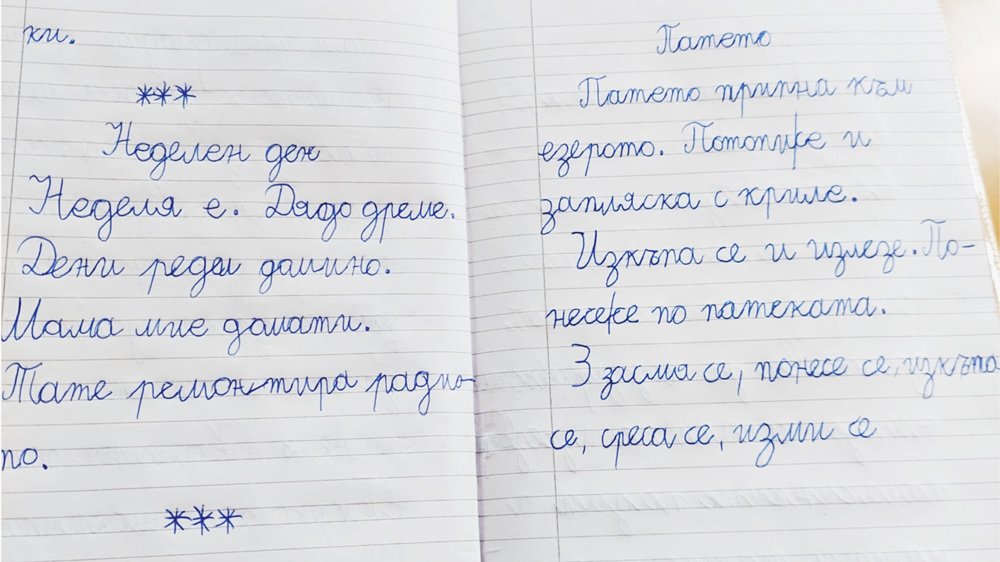 ки.
***
Неделен ден
Неделя е. Дядо дреме.
Дени реди домино.
Мама мие домати.
Тате ремонтира радио-
то.
***
Патето
Патето припна към
езерото. Потопи се и
запляска с криле.
Изкъпа се и излезе. По-
несе се по патеката.
З засмя се, понесе се, изкъпа
се, среса се, изми се